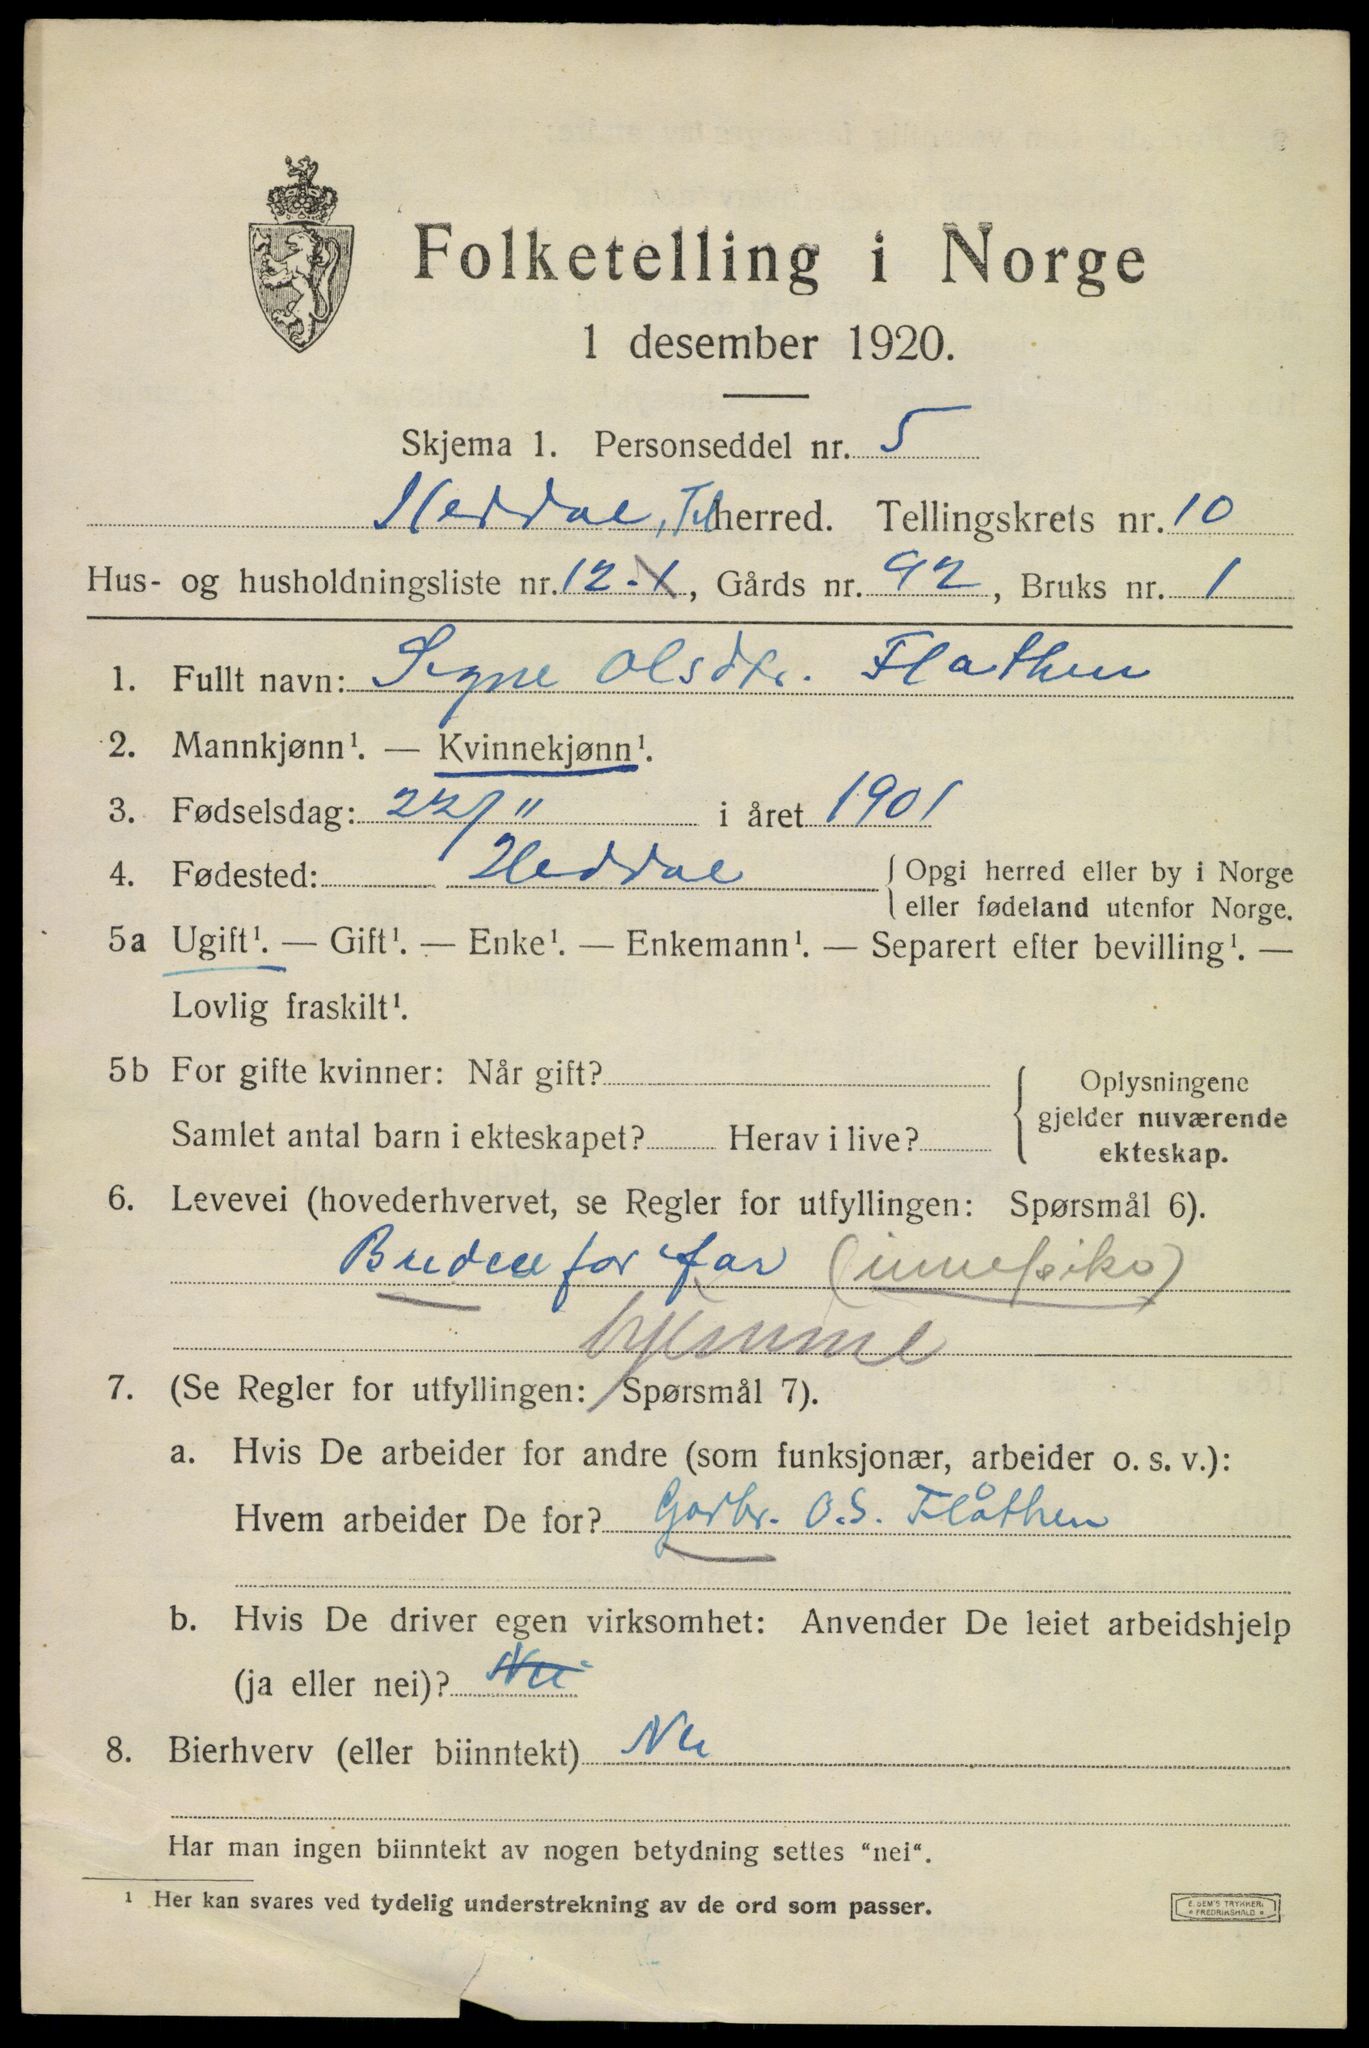 Folketelling i Norge
1 desember 1920.
Skjema 1. Personseddel nr. 5
Heddal, Tel herred. Tellingskrets nr. 10
Hus- og husholdningsliste nr. 12-1, Gårds nr. 92, Bruks nr. 1
1. Fullt navn: Signe Olsdtr. Flathen
2. Mannkjønn¹. — Kvinnekjønn¹.
3. Fødselsdag: 22/11 i året 1901
4. Fødested: Heddal { Opgi herred eller by i Norge
eller fødeland utenfor Norge.
5a Ugift¹. — Gift¹. — Enke¹. — Enkemann¹. — Separert efter bevilling¹. —
Lovlig fraskilt¹.
5b For gifte kvinner: Når gift? { Oplysningene
gjelder nuværende
Samlet antal barn i ekteskapet? Herav i live?
ekteskap.
6. Levevei (hovederhvervet, se Regler for utfyllingen: Spørsmål 6).
Budeie for far
hjemme
7. (Se Regler for utfyllingen: Spørsmål 7).
a. Hvis De arbeider for andre (som funksjonær, arbeider o. s. v.):
Hvem arbeider De for? Gardbr. O.S. Flåthen
b. Hvis De driver egen virksomhet: Anvender De leiet arbeidshjelp
(ja eller nei)? Nei
8. Bierhverv (eller biinntekt) Nei
Har man ingen biinntekt av nogen betydning settes "nei".
¹ Her kan svares ved tydelig understrekning av de ord som passer.
E. SEM'S TRYKKERI
FREDRIKSHALD